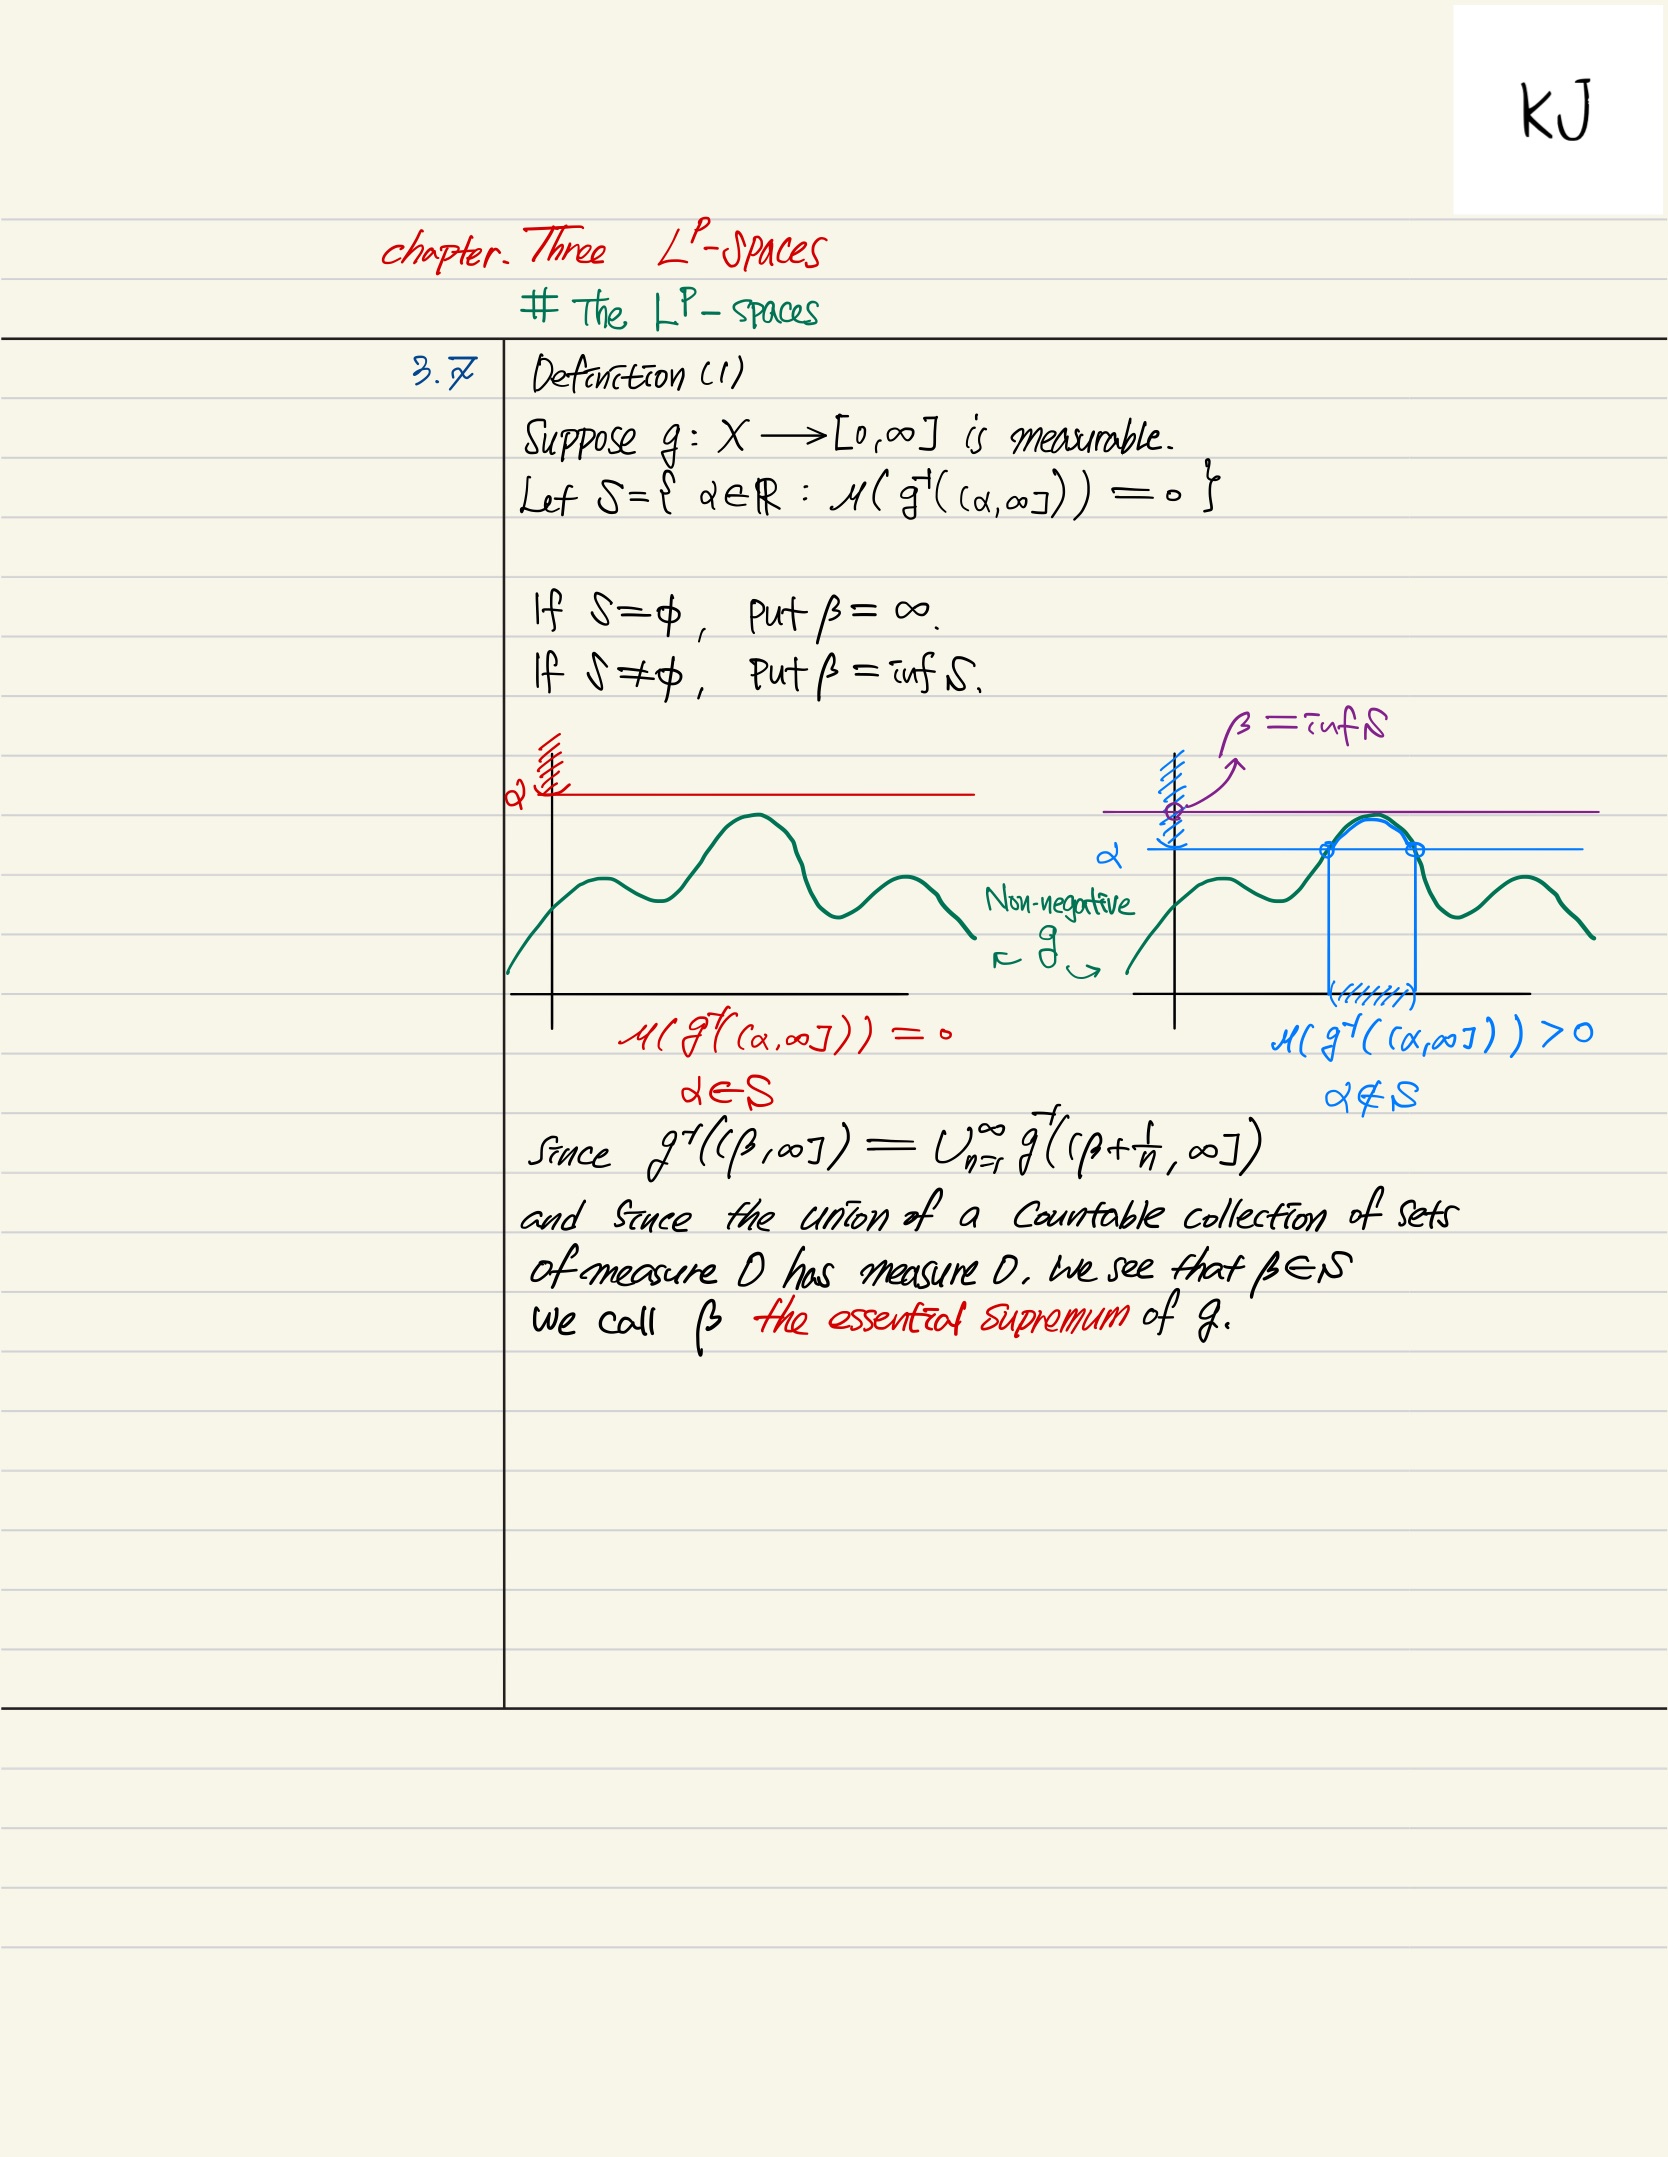 KJ
chapter. Three L^p-spaces
# The L^p-spaces
3.7 Definition (1)
Suppose g: X ⟶ [0,∞] is measurable.
Let S = { α∈ℝ : μ(g⁻¹((α,∞])) = 0 }
If S=ϕ, put β = ∞.
If S≠ϕ, put β = inf S.
β = inf S
α
α
Non-negative
g
μ(g⁻¹((α,∞])) = 0
μ(g⁻¹((α,∞])) > 0
α∈S
α∉S
Since g⁻¹((β,∞]) = ∪_{n=1}^∞ g⁻¹((β+1/n, ∞])
and since the union of a countable collection of sets
of measure 0 has measure 0. we see that β∈S
we call β the essential supremum of g.